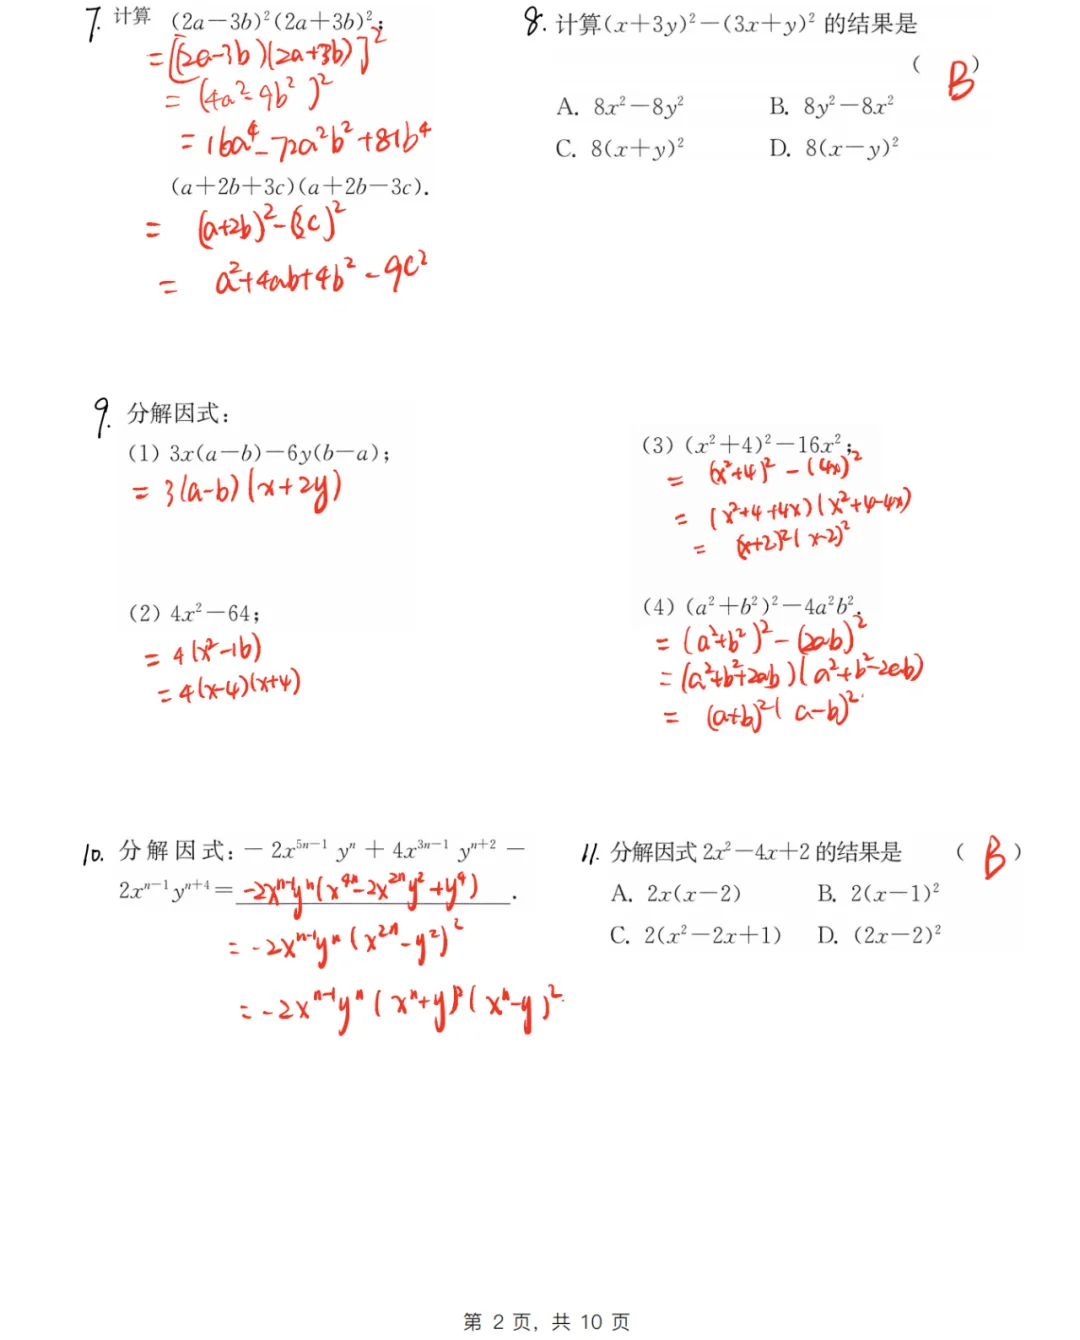 7. 计算 (2a-3b)²(2a+3b)²;
=[(2a-3b)(2a+3b)]²
=(4a²-9b²)²
=16a⁴-72a²b²+81b⁴
(a+2b+3c)(a+2b-3c).
= (a+2b)²-(3c)²
= a²+4ab+4b²-9c²
8. 计算(x+3y)²-(3x+y)² 的结果是
( B )
A. 8x²-8y² B. 8y²-8x²
C. 8(x+y)² D. 8(x-y)²
9. 分解因式:
(1) 3x(a-b)-6y(b-a);
= 3(a-b)(x+2y)
(2) 4x²-64;
= 4(x²-16)
= 4(x-4)(x+4)
(3) (x²+4)²-16x²;
= (x²+4)²-(4x)²
= (x²+4+4x)(x²+4-4x)
= (x+2)²(x-2)²
(4) (a²+b²)²-4a²b².
= (a²+b²)²-(2ab)²
= (a²+b²+2ab)(a²+b²-2ab)
= (a+b)²(a-b)².
10. 分解因式: -2x⁵ⁿ⁻¹yⁿ+4x³ⁿ⁻¹yⁿ⁺²-
2xⁿ⁻¹yⁿ⁺⁴= -2xⁿ⁻¹yⁿ(x⁴ⁿ-2x²ⁿy²+y⁴) .
= -2xⁿ⁻¹yⁿ(x²ⁿ-y²)²
= -2xⁿ⁻¹yⁿ(xⁿ+y)²(xⁿ-y)².
11. 分解因式 2x²-4x+2 的结果是 ( B )
A. 2x(x-2) B. 2(x-1)²
C. 2(x²-2x+1) D. (2x-2)²
第 2 页, 共 10 页